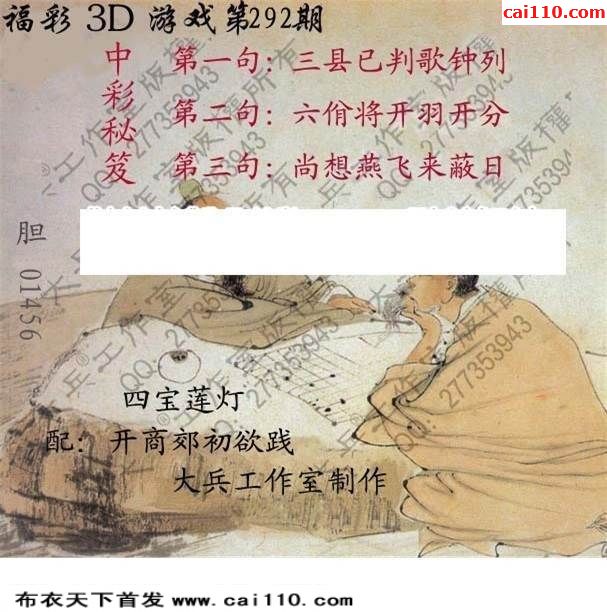 cai110.com
福彩 3D 游戏第292期
中彩秘笈
第一句：三县已判歌钟列
第二句：六佾将开羽开分
第三句：尚想燕飞来蔽日
胆 01456
四宝莲灯
配：开商郊初欲践
大兵工作室制作
大兵®工作室版权所有
QQ：277353943
布衣天下首发 www.cai110.com